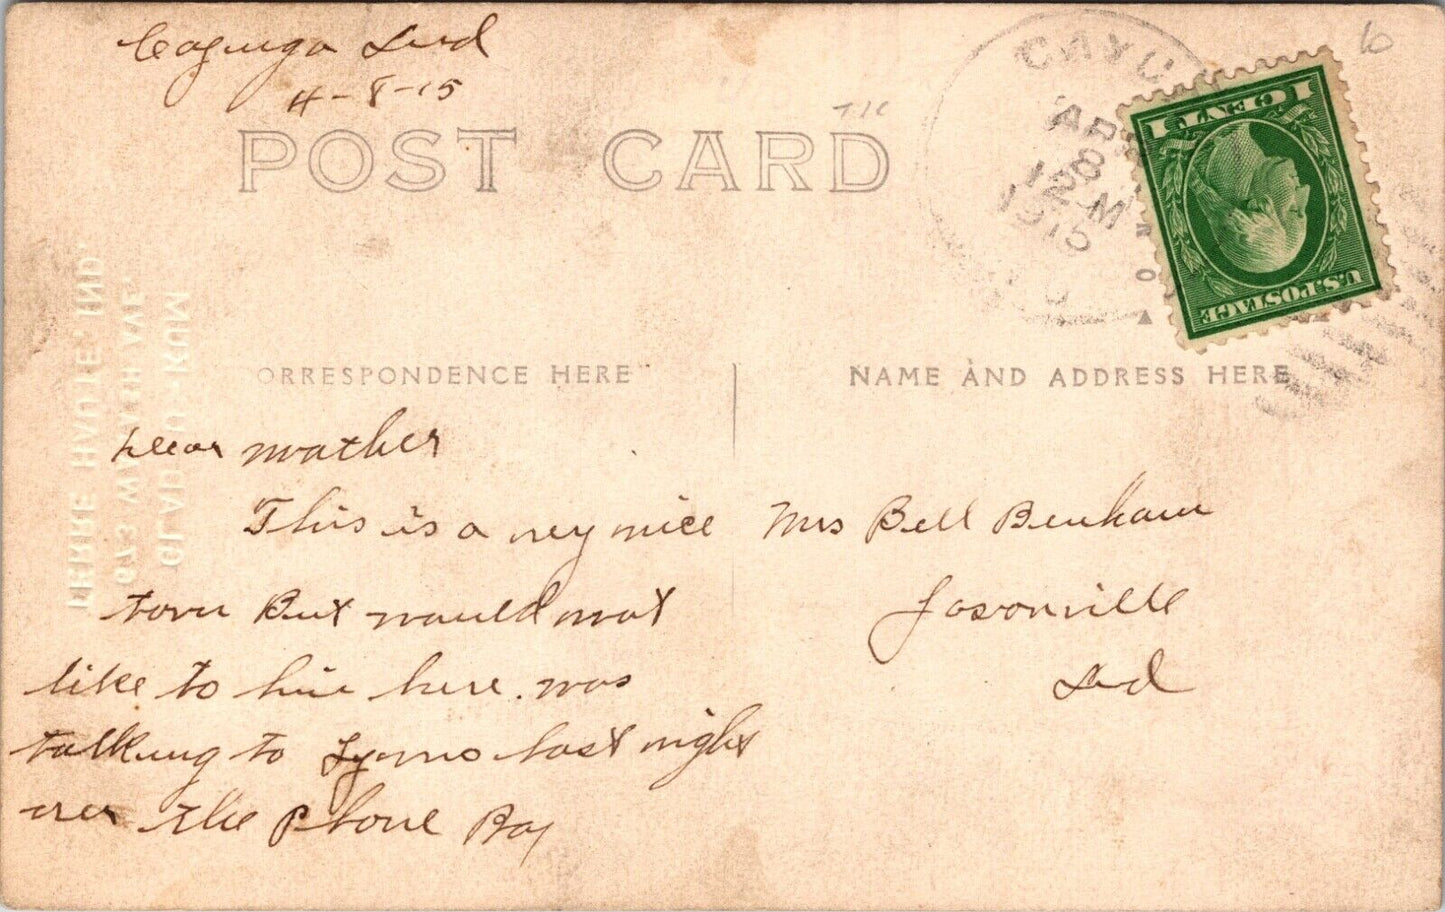 Cayuga Ind
4-8-15
POST CARD
CAYU
APR
8
12 M
1915
ONE CENT
U.S. POSTAGE
R
O
CORRESPONDENCE HERE
NAME AND ADDRESS HERE
Dear mother
This is a vey nice
town But would not
like to live here. was
talking to Lyons last night
over the Phone Ray
Mrs Bell Benham
Jasonville
Ind
673 WABASH AVE.
TERRE HAUTE, IND.